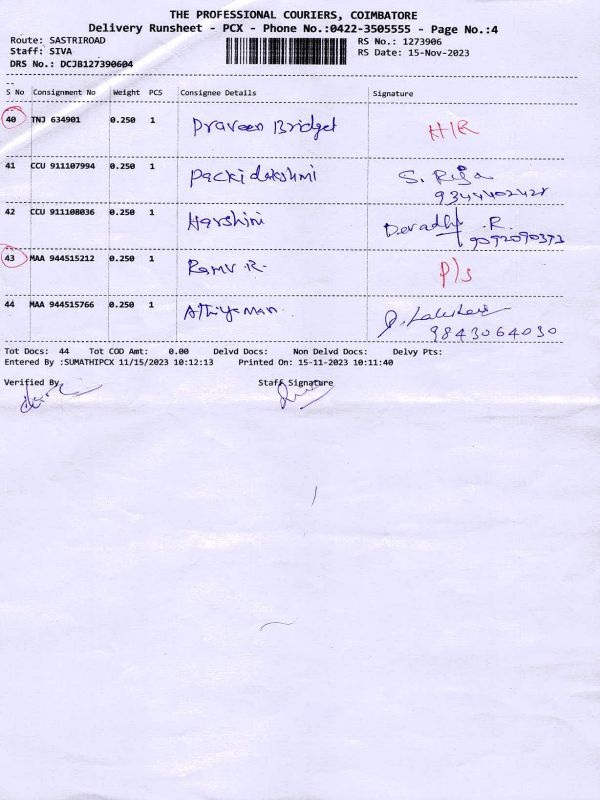 THE PROFESSIONAL COURIERS, COIMBATORE
Delivery Runsheet - PCX - Phone No.:0422-3505555 - Page No.:4
Route: SASTRIROAD RS No.: 1273906
Staff: SIVA RS Date: 15-Nov-2023
DRS No.: DCJB127390604
S No Consignment No Weight PCS Consignee Details Signature
40 TNJ 634901 0.250 1 Praveen Bridget H/R
41 CCU 911107994 0.250 1 Packi dakshmi S.
42 CCU 911108036 0.250 1 Harshini R.
9092090373
43 MAA 944515212 0.250 1 Ramu R. P/s
44 MAA 944515766 0.250 1 Athiyaman.
9843064030
Tot Docs: 44 Tot COD Amt: 0.00 Delvd Docs: Non Delvd Docs: Delvy Pts:
Entered By :SUMATHIPCX 11/15/2023 10:12:13 Printed On: 15-11-2023 10:11:40
Verified By Staff Signature